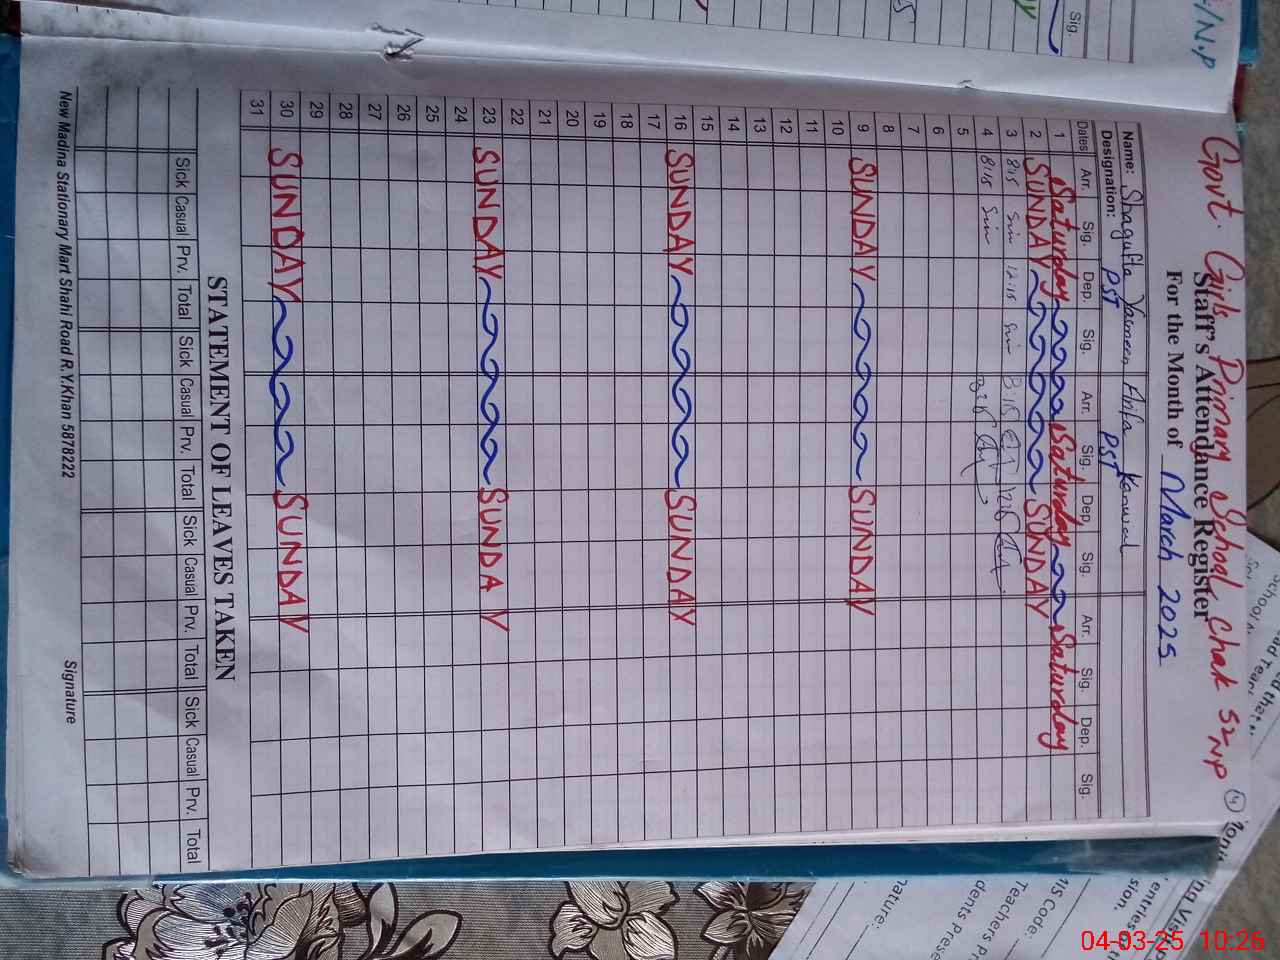 Govt. Girls Primary School Chak 52 NP
Staff's Attendance Register
For the Month of March 2025
Name: Shagufta Yasmeen Arifa Kanwal
Designation: PST PST
Dates Arr. Sig. Dep. Sig. Arr. Sig. Dep. Sig. Arr. Sig. Dep. Sig.
1 Saturday Saturday Saturday
2 SUNDAY SUNDAY
3 8:15 12:15 8:15
4 8:15
5
6
7
8
9 SUNDAY SUNDAY
10
11
12
13
14
15
16 SUNDAY SUNDAY
17
18
19
20
21
22
23 SUNDAY SUNDAY
24
25
26
27
28
29
30 SUNDAY SUNDAY
31
STATEMENT OF LEAVES TAKEN
Sick Casual Prv. Total Sick Casual Prv. Total Sick Casual Prv. Total Sick Casual Prv. Total
New Madina Stationary Mart Shahi Road R.Y.Khan 5878222 Signature
/N.P
Sig.
Teachers
dents Prese
nature:
IS Code:
sion.
04-03-25 10:26